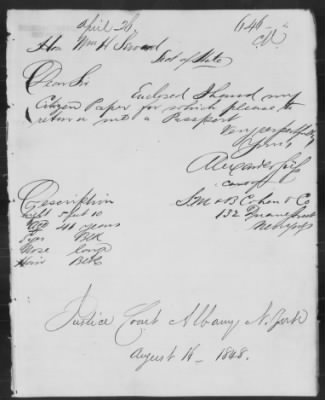 April 26
646
Hon Wm H Seward
Sect of State
Dear Sir
Enclosed I hand my
Citizen Paper for which please to
return me a Passport
Very respectfully
Yours
Alexander
care of
S.M & B Cohen & Co
132 Duane street
New York
Description
Height 5 feet 10
Age 41 years
Eyes Blk
Nose long
Hair Black
Justice Court Albany N. York
August 16 - 1848.